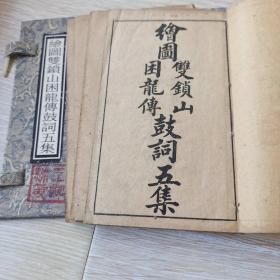 繪圖雙鎖山困龍傳鼓詞五集
繪圖
雙鎖山
困龍傳
鼓詞五集